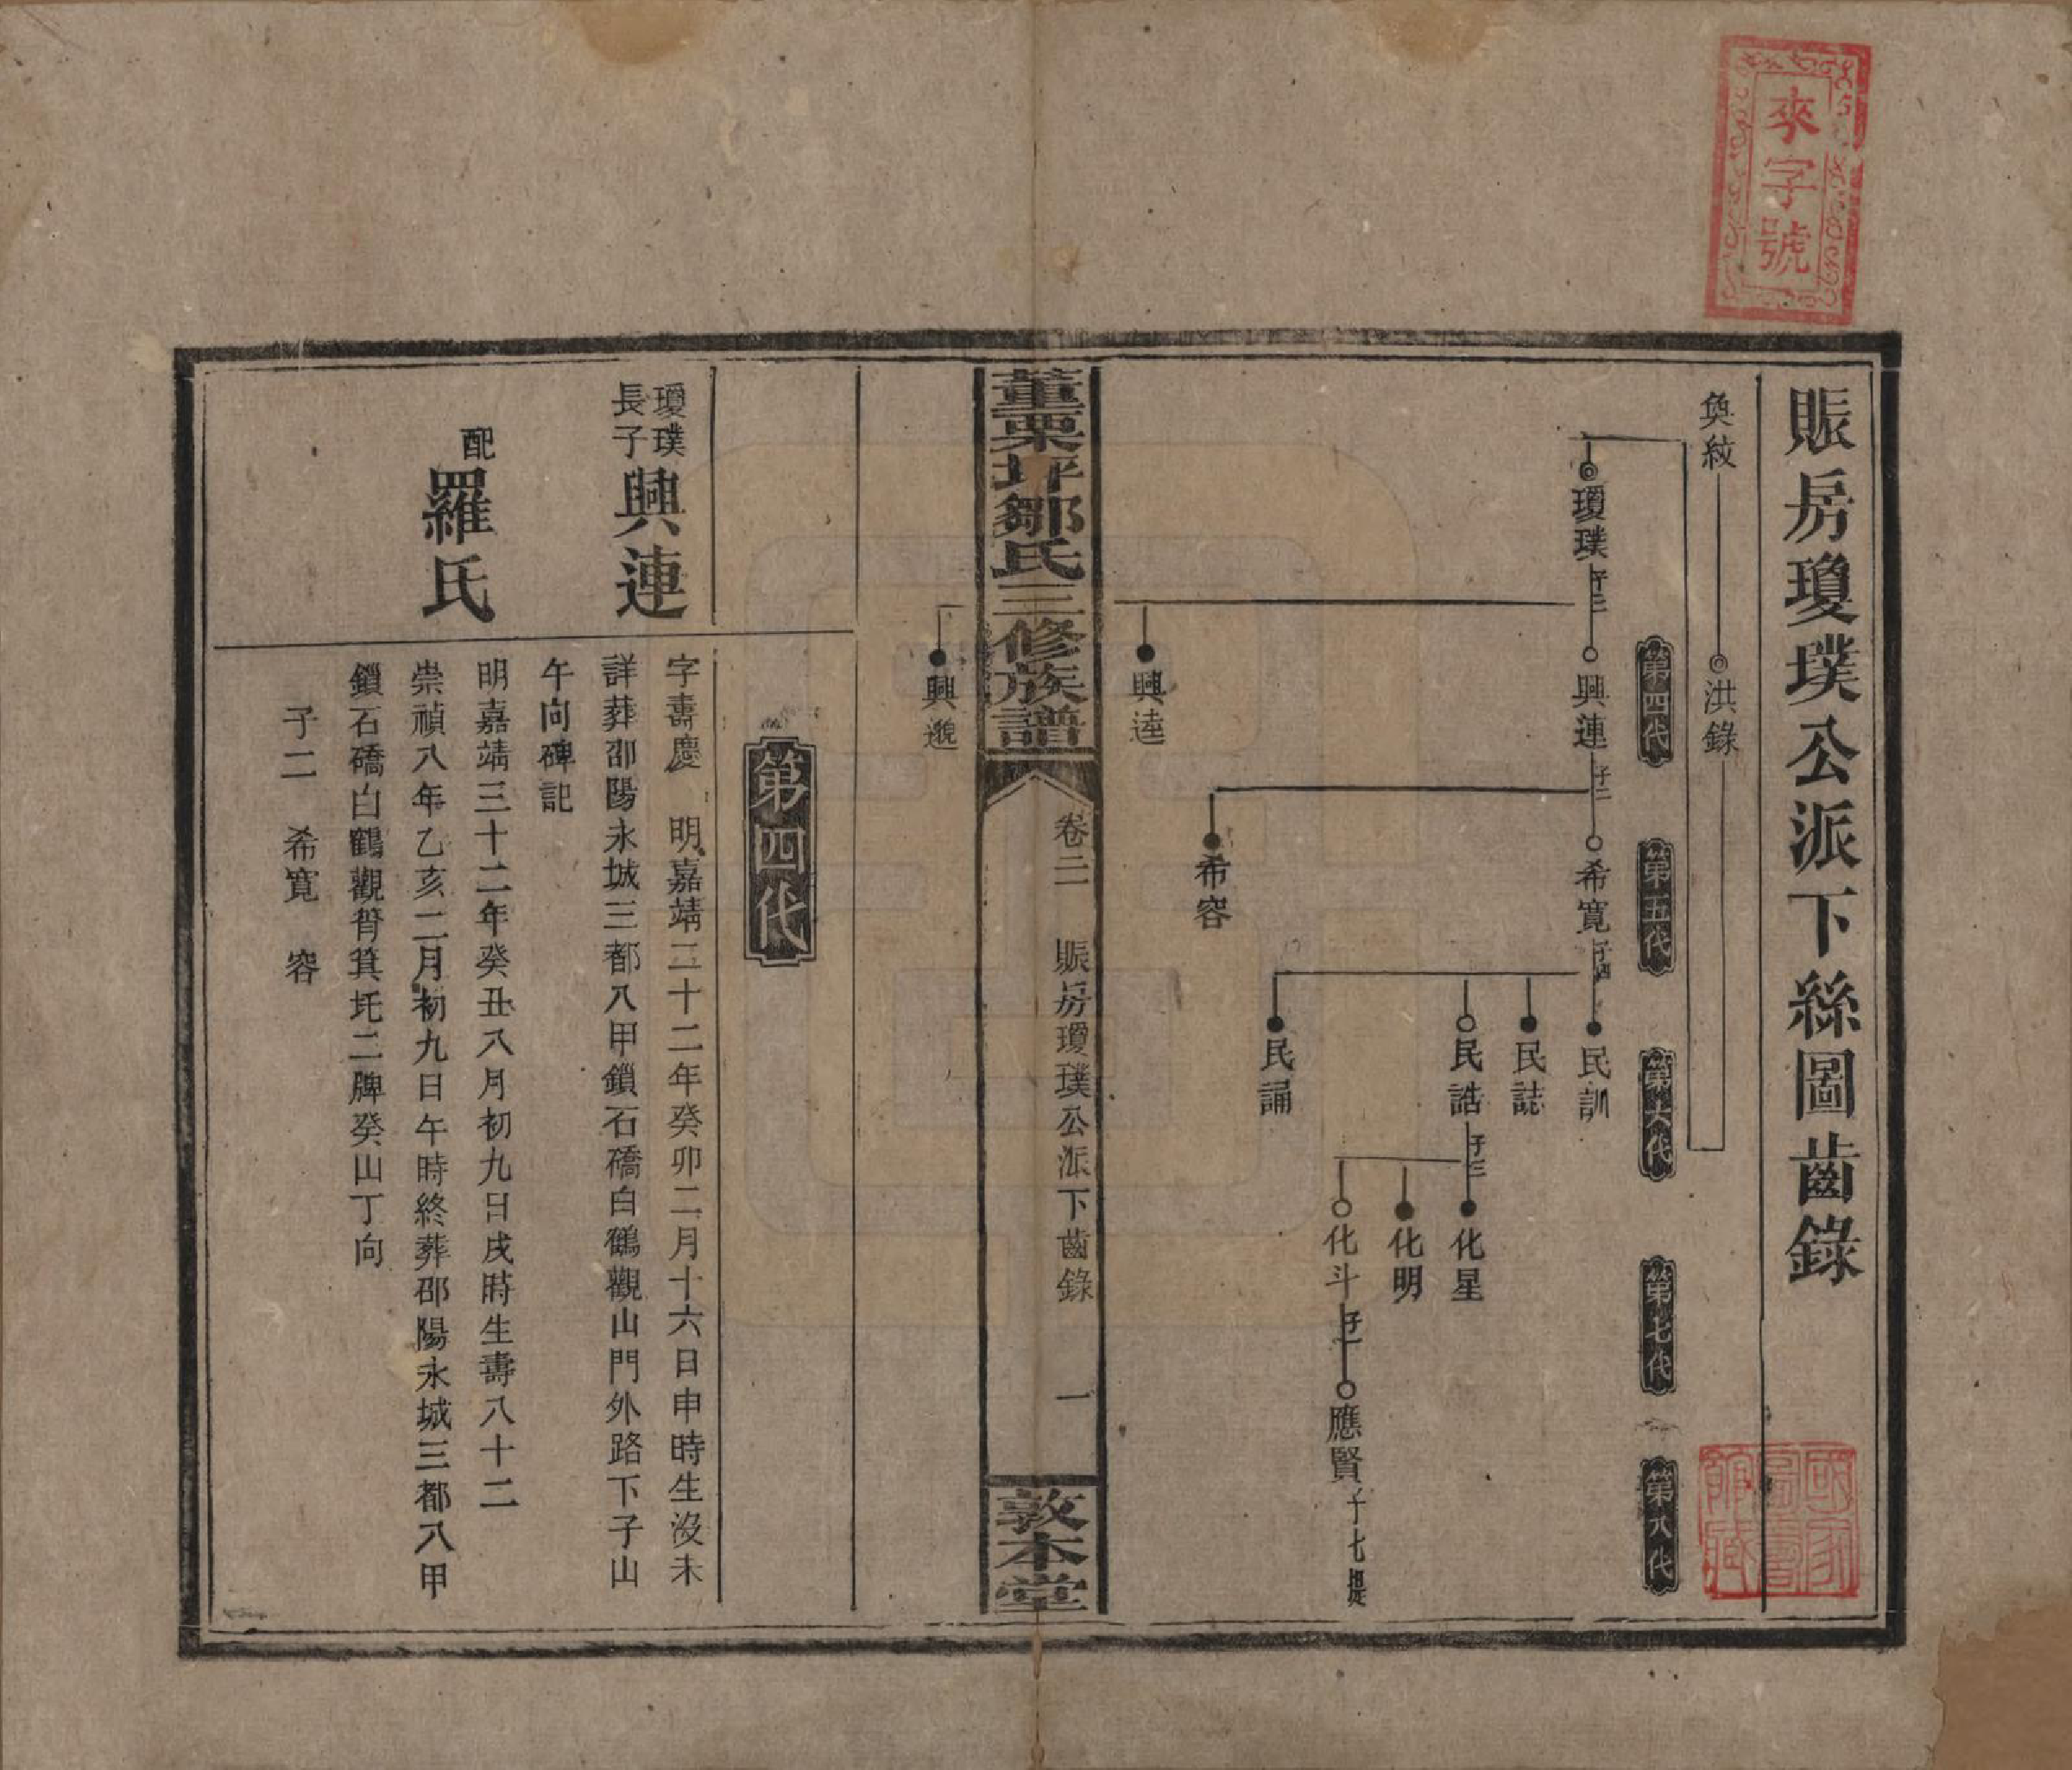 來字號
賬房瓊璞公派下絲圖齒錄
奐紋
洪錄
第四代
第五代
第六代
第七代
第八代
瓊璞 子三
興連 子二
希寬 子四
民訓
民誌
民誥 子三
化星
化明
化斗 子一
應賢 子七 提
民誦
希容
興逵
興邈
董栗坪鄒氏三修族譜
卷二 賬房瓊璞公派下齒錄 一
敦本堂
第四代
瓊璞
長子
興連
字壽慶 明嘉靖二十二年癸卯二月十六日申時生沒未
詳葬邵陽永城三都八甲鎖石橋白鶴觀山門外路下子山
午向碑記
配
羅氏
明嘉靖三十二年癸丑八月初九日戌時生壽八十二
崇禎八年乙亥二月初九日午時終葬邵陽永城三都八甲
鎖石橋白鶴觀脊箕圫二牌癸山丁向
子二 希寬 容
國家圖書館藏